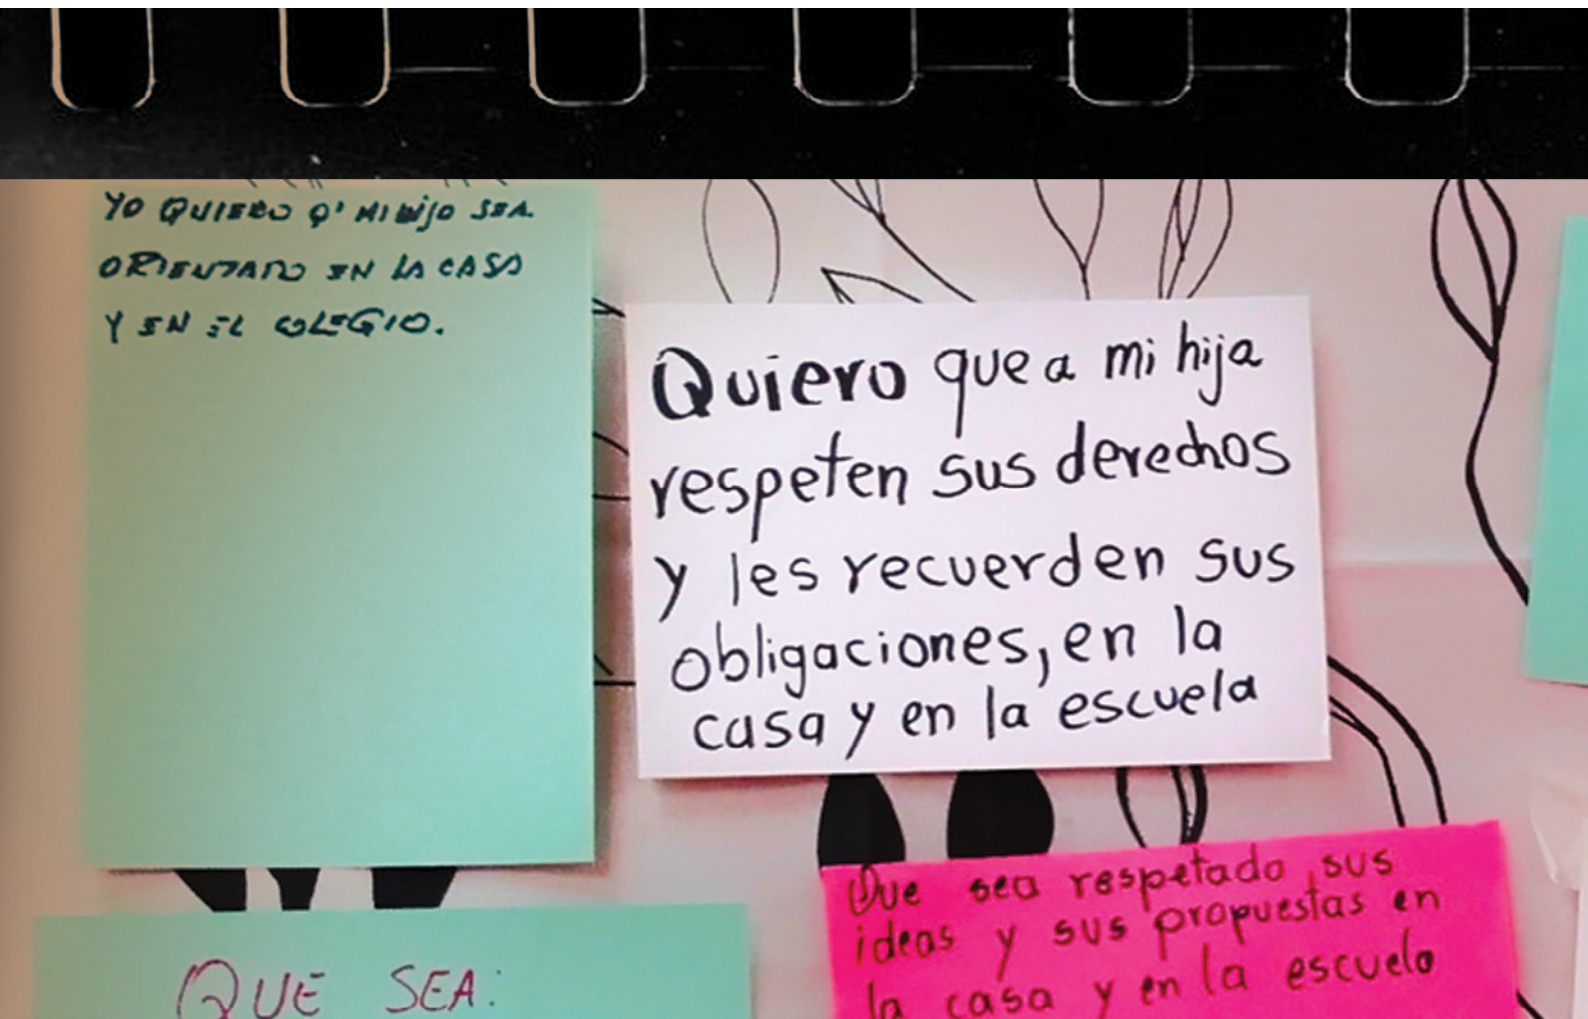 YO QUIERO Q' MI HIJO SEA.
ORIENTADO EN LA CASA
Y EN EL COLEGIO.
Quiero que a mi hija
respeten sus derechos
y les recuerden sus
obligaciones, en la
casa y en la escuela
Que sea respetado sus
ideas y sus propuestas en
la casa y en la escuela
QUE SEA: